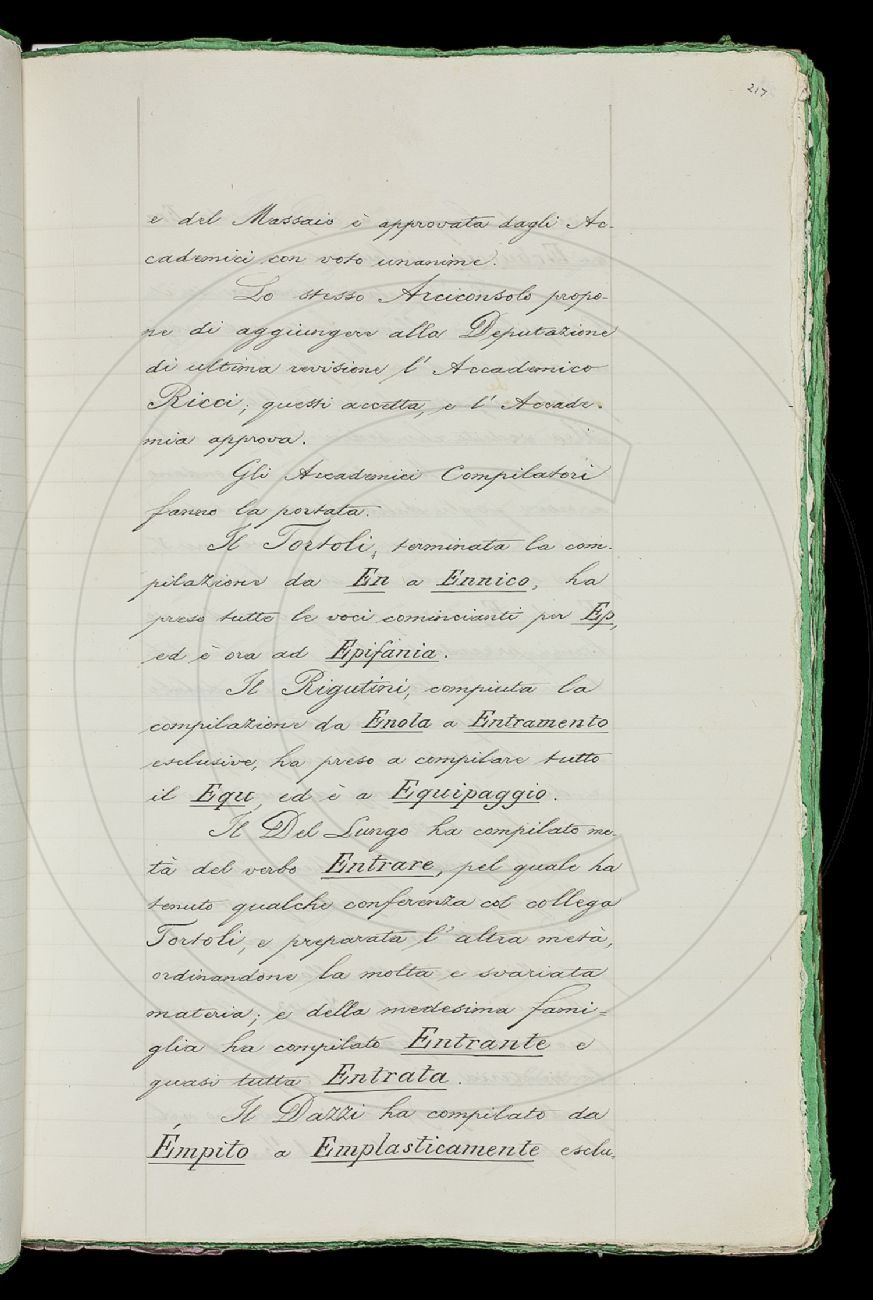 217
e del Massaio è approvata dagli Ac-
cademici con voto unanime.
Lo stesso Arciconsolo propo-
ne di aggiungere alla Deputazione
di ultima revisione l' Accademico
Ricci; questi accetta, e l' Accade-
mia approva.
Gli Accademici Compilatori
fanno la portata.
Il Tortoli, terminata la com-
pilazione da En a Ennico, ha
preso tutte le voci comincianti per Ep,
ed è ora ad Epifania.
Il Rigutini, compiuta la
compilazione da Enola a Entramento
esclusive, ha preso a compilare tutto
il Equ, ed è a Equipaggio.
Il Del Lungo ha compilato me-
tà del verbo Entrare, pel quale ha
tenuto qualche conferenza col collega
Tortoli, e preparata l' altra metà,
ordinandone la molta e svariata
materia; e della medesima fami=
glia ha compilato Entrante e
quasi tutta Entrata.
Il Dazzi ha compilato da
Émpito a Emplasticamente esclu-